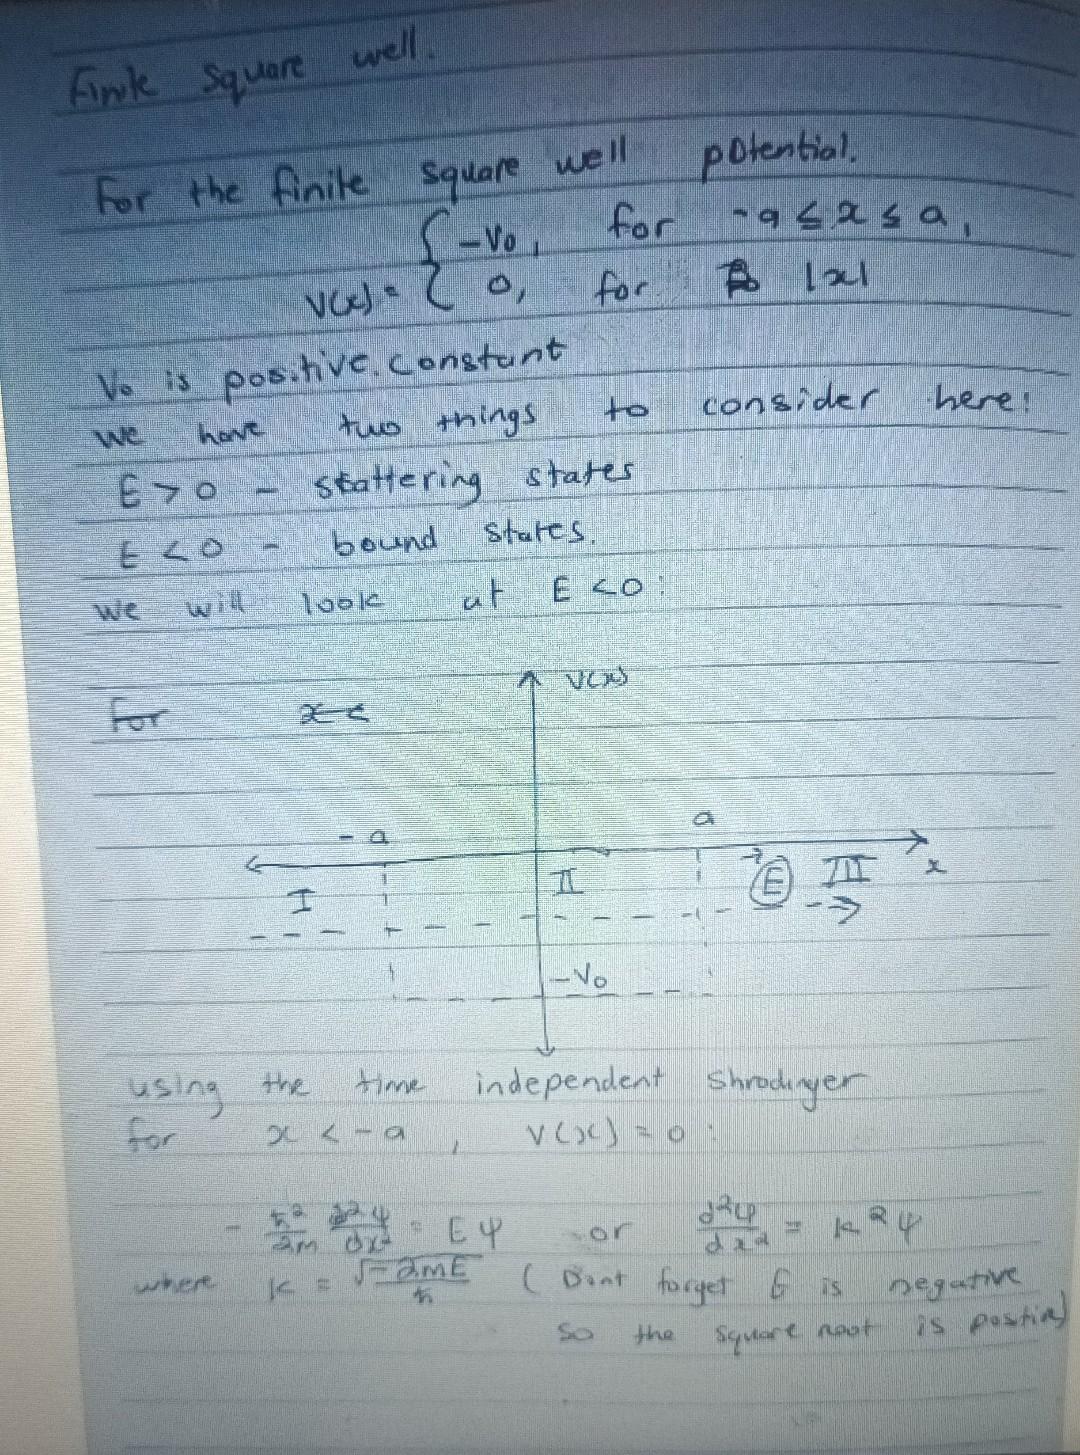 Finite square well.
For the finite square well potential.
V(x) = { -V₀, for -a ≤ x ≤ a,
0, for |x|
V₀ is positive. constant
we have two things to consider here:
E > 0 - scattering states
E < 0 - bound states.
we will look at E < 0:
V(x)
For x <
-a a
I II E III x
-V₀
using the time independent Shrodinger
for x < -a, V(x) = 0:
- ħ²/2m d²ψ/dx² = Eψ or d²ψ/dx² = k²ψ
where k = √-2mE/ħ (Dont forget E is negative
so the square root is postive)